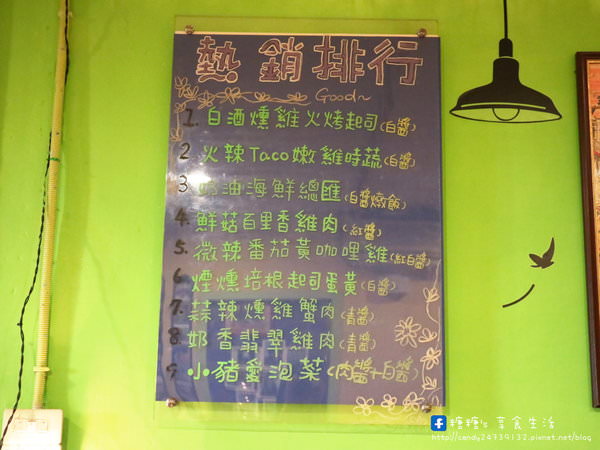 熱銷排行
Good~
1. 白酒燻雞火烤起司(白醬)
2. 火辣Taco嫩雞時蔬(白醬)
3. 奶油海鮮總匯(白醬燉飯)
4. 鮮菇百里香雞肉(紅醬)
5. 微辣番茄黃咖哩雞(紅白醬)
6. 煙燻培根起司蛋黃(白醬)
7. 蒜辣燻雞蟹肉(青醬)
8. 奶香翡翠雞肉(青醬)
9. 小豬愛泡菜(肉醬+白醬)
糖糖's 享食生活
http://candy24739132.pixnet.net/blog